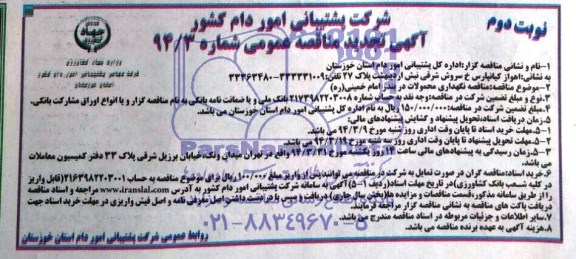 نوبت دوم
شرکت پشتیبانی امور دام کشور
آگهی تجدید مناقصه عمومی شماره ۹۴/۳
جهاد
وزارت جهاد کشاورزی
شرکت پشتیبانی امور دام کشور
استان خوزستان
۱-نام و نشانی مناقصه گزار:اداره کل پشتیبانی امور دام استان خوزستان
به نشانی:اهواز کیانپارس خ سروش شرقی نبش اردیبهشت پلاک ۲۷ تلفن:۳۳۳۳۱۰۰۹-۳۳۳۶۳۴۸۰
۲-موضوع مناقصه:مناقصه نگهداری محمولات در بندر امام خمینی(ره)
۳.نوع و مبلغ تضمین شرکت در مناقصه:وجه نقد به حساب شماره ۲۱۷۳۹۸۲۲۰۳۰۰۸ بانک ملی و یا ضمانت نامه بانکی به نام مناقصه گزار و یا انواع اوراق مشارکت بانکی.
۴.مبلغ تضمین شرکت در مناقصه:۱۵۰/۰۰۰/۰۰۰ ریال به نام اداره کل پشتیبانی امور دام استان خوزستان می باشد.
۵.زمان دریافت اسناد، تحویل پیشنهاد و گشایش پیشنهادهای مالی:
۵-۱.مهلت خرید اسناد تا پایان وقت اداری روز ۹۴/۲/۹ می باشد.
۵-۲.مهلت تحویل پیشنهاد تا پایان وقت اداری روز سه شنبه مورخ ۹۴/۲/۱۹ می باشد.
۵-۳.زمان رسیدگی به پیشنهادهای مالی ساعت روز یکشنبه مورخ ۹۴/۲/۳۱ واقع در تهران میدان ونک، خیابان برزیل شرقی پلاک ۳۳ دفتر کمیسیون معاملات
۶.خرید اسناد:مناقصه گران در صورت تمایل به شرکت در مناقصه می توانند پس از واریز مبلغ ۱۰۰/۰۰۰ ریال برای موضوع مناقصه به حساب ۲۱۶۳۹۸۲۲۰۳۰۰۱(قابل واریز
در کلیه شعب بانک کشاورزی)در تاریخ مهلت اسناد(ردیف ۱-۵)به سامانه شرکت پشتیبانی امور دام کشور به آدرس www.iranslal.com مراجعه و اسناد مناقصه
را از طریق سامانه مذکور(قسمت مناقصات و مزایده ها بخش سال جاری) دریافت و سپس با در دست داشتن اصل معرفی نامه و اصل فیش واریزی در مهلت خرید اسناد جهت
دریافت پاکت های مناقصه به نشانی مناقصه گزار مراجعه فرمایند.
۷.سایر اطلاعات و جزئیات مربوطه در اسناد مناقصه مندرج می باشد.
۸.هزینه آگهی به عهده برنده مناقصه می باشد.
روابط عمومی شرکت پشتیبانی امور دام استان خوزستان
ParsNamad
۰۲۱-۸۸۳۴۹۶۷۰-۵